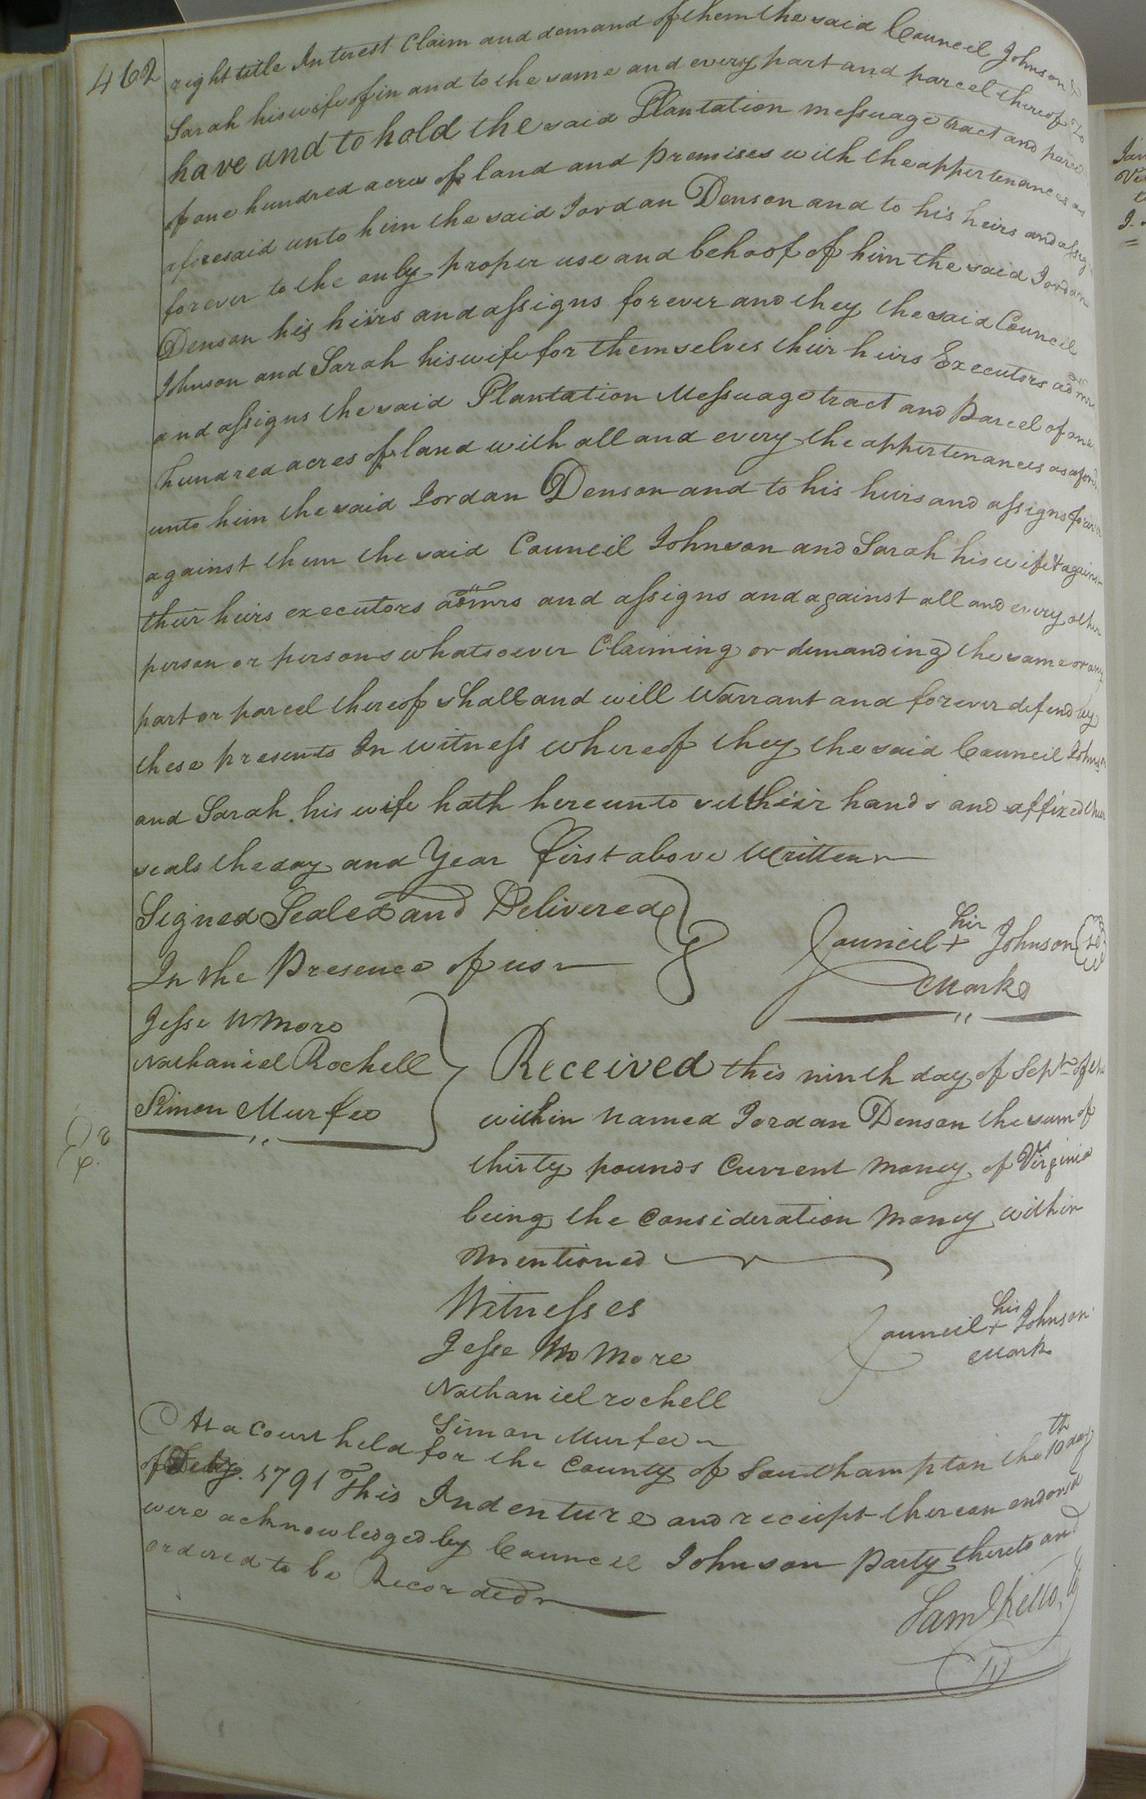 462
right title Interest Claim and demand of them the said Council Johnson &
Sarah his wife of in and to the same and every part and parcel thereof To
have and to hold the said Plantation messuage tract and parcel
of one hundred acres of land and premises with the appertenances as
aforesaid unto him the said Jordan Denson and to his heirs and assigns
forever to the only proper use and behoof of him the said Jordan
Denson his heirs and assigns forever and they the said Council
Johnson and Sarah his wife for themselves their heirs Executors admrs
and assigns the said Plantation Messuage tract and Parcel of one
hundred acres of land with all and every the appertenances as afores
unto him the said Jordan Denson and to his heirs and assigns forever
against them the said Council Johnson and Sarah his wife & against
their heirs executors admrs and assigns and against all and every other
person or persons whatsoever Claiming or demanding the same or any
part or parcel thereof shall and will warrant and forever defend by
these presents In witness whereof they the said Council Johnson
and Sarah his wife hath hereunto set their hands and affixed their
seals the day and Year first above Written
Signed Sealed and Delivered
In the Presence of us
Council his + Johnson
Mark
Jesse Wmore
Nathaniel Rochell
Simon Murfee
Received this ninth day of Sepr of the
within named Jordan Denson the sum of
thirty pounds Current money of Virginia
being the Consideration money within
mentioned
Witnesses
Jesse Wo More
Nathaniel rochell
Simon Murfee
Council his + Johnson
Mark
At a Court held for the County of Southampton the 10th day
of Feby. 1791 This Indenture and reciept thereon endorsed
were acknowledged by Council Johnson Party thereto and
ordered to be Recorded
Saml Kello